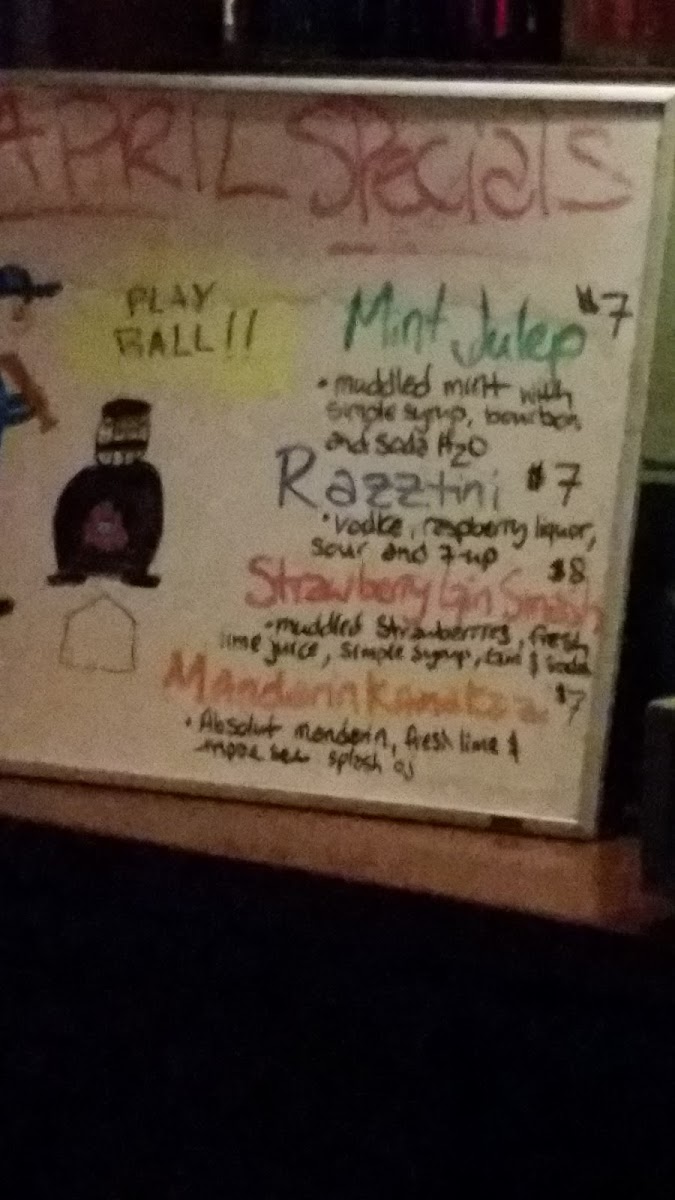 APRIL Specials
PLAY
BALL!!
Mint Julep $7
• muddled mint with
simple syrup, bourbon
and soda H2O
Razztini $7
• vodka, raspberry liquor,
sour and 7-up
Strawberry Gin Smash $8
• muddled strawberries, fresh
lime juice, simple syrup, &
Mandarin $7
• Absolut mandarin, fresh lime &
splash oj